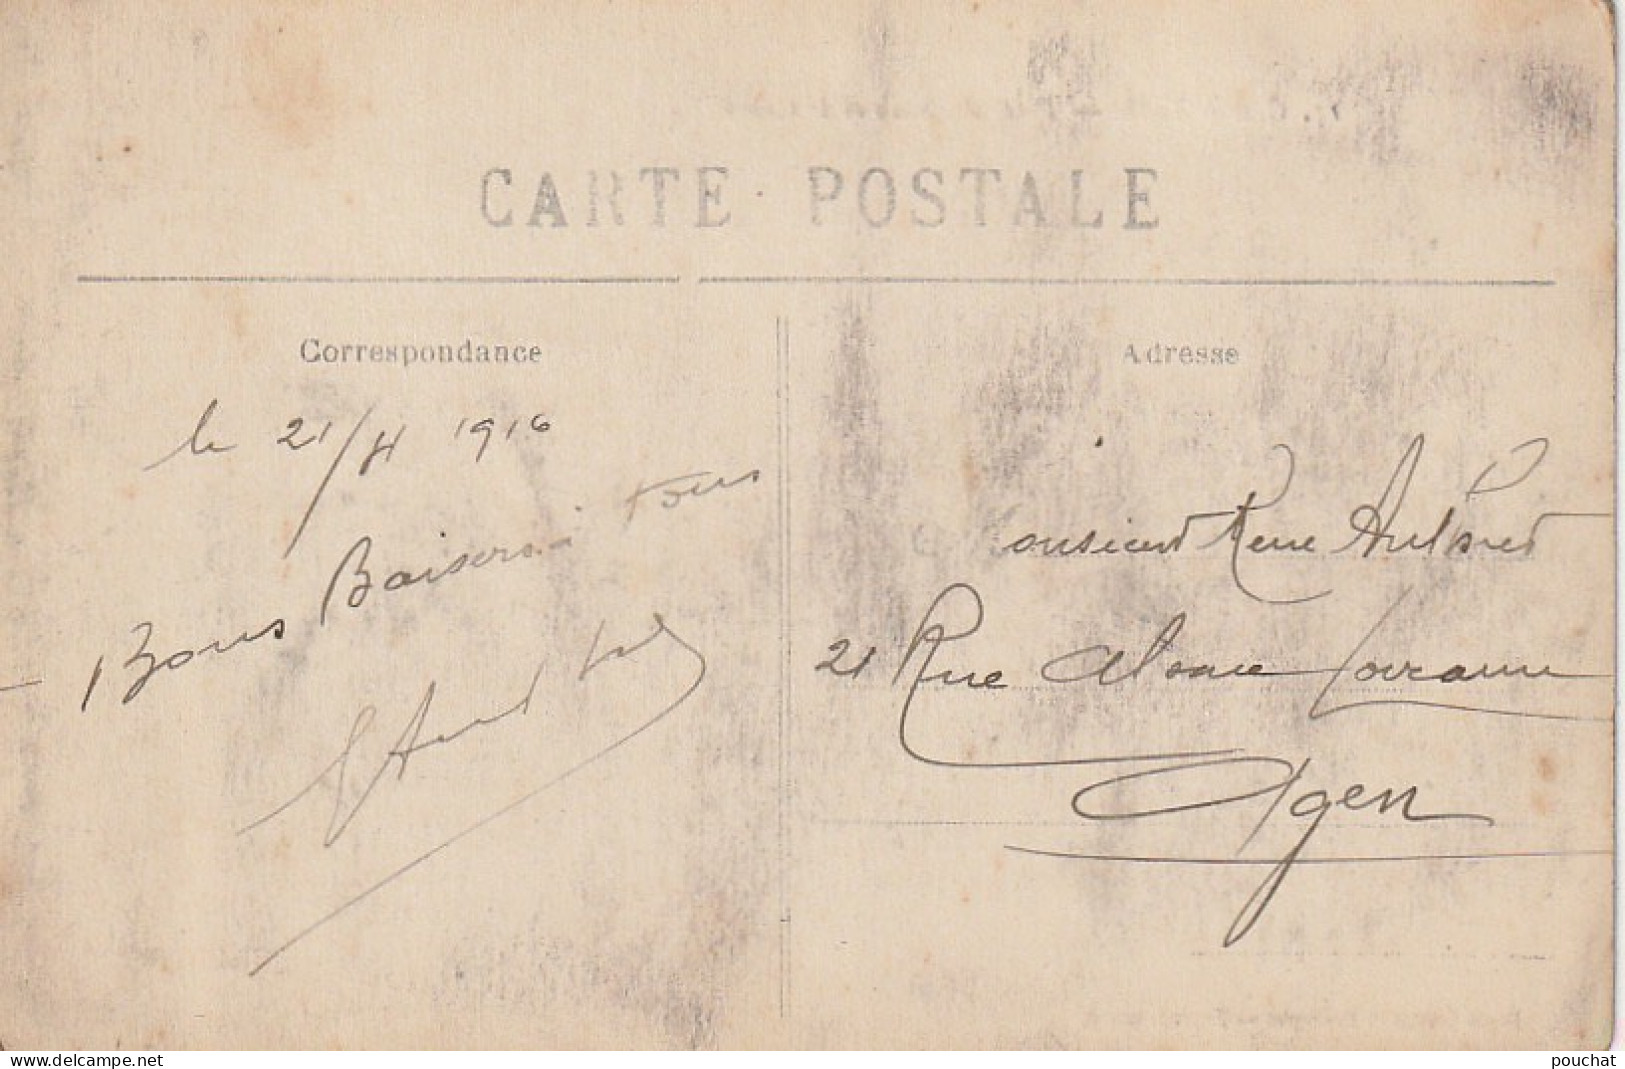 CARTE POSTALE
Correspondance
le 21/4 1916
Bons Baisers à tous
Adresse
Monsieur Rene
21 Rue Alsace Lorraine
Agen
www.delcampe.net
pouchat